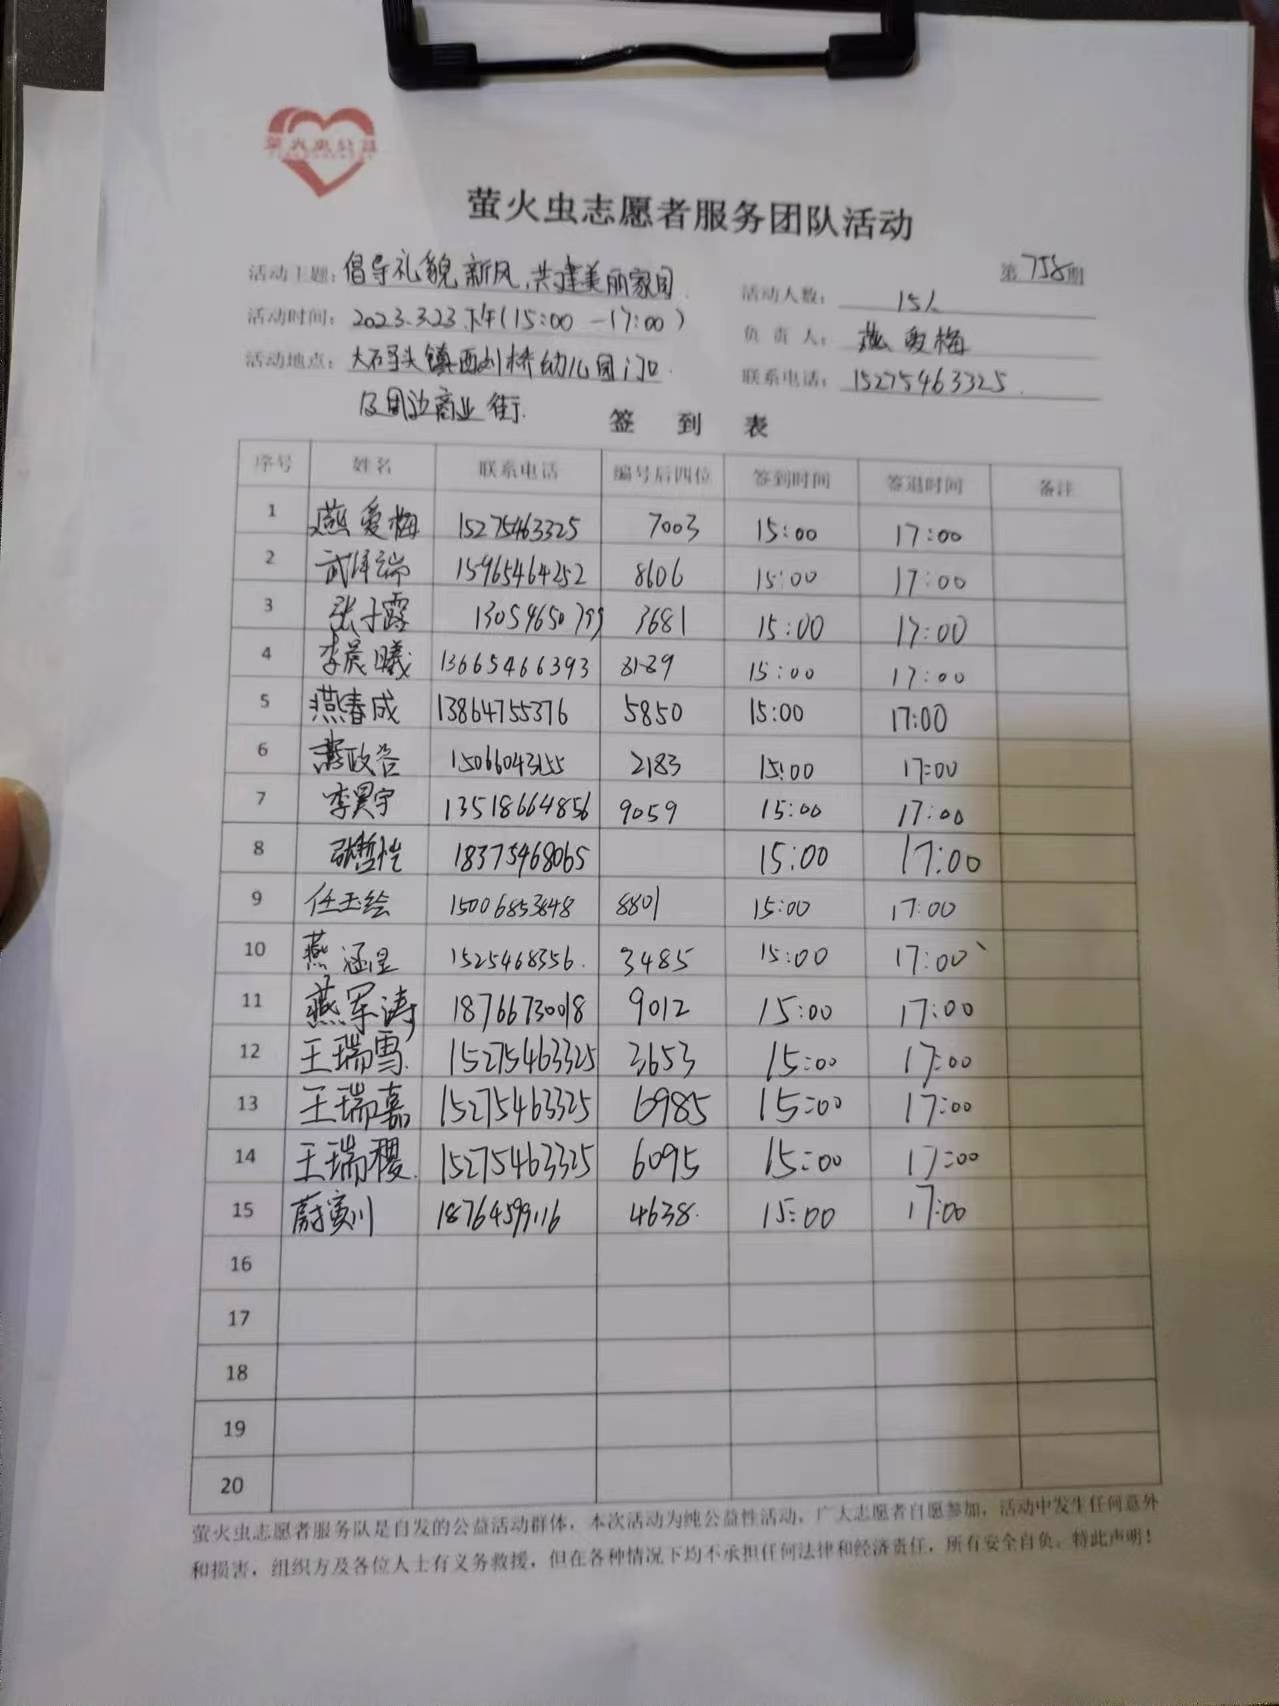 萤火虫公益
萤火虫志愿者服务团队活动
第758期
活动主题：倡导礼貌新风，共建美丽家园
活动人数：15人
活动时间：2023.3.23下午(15:00 —17:00)
负责人：燕爱梅
活动地点：大码头镇西刘桥幼儿园门口
联系电话：15275463325
及周边商业街.
签 到 表
序号 姓名 联系电话 编号后四位 签到时间 签退时间 备注
1 燕爱梅 15275463325 7003 15:00 17:00
2 武泽端 15965464252 8606 15:00 17:00
3 张子露 13054650799 3681 15:00 17:00
4 李晨曦 13665466393 3139 15:00 17:00
5 燕春成 13864755376 5850 15:00 17:00
6 15066043155 2183 15:00 17:00
7 李昊宇 13518664856 9059 15:00 17:00
8 张哲恺 18375468065 15:00 17:00
9 任玉绘 15006853848 8801 15:00 17:00
10 燕涵呈 1525468356. 3485 15:00 17:00
11 燕军涛 18766730018 9012 15:00 17:00
12 王瑞雪. 15275463325 3653 15:00 17:00
13 王瑞嘉 15275463325 6985 15:00 17:00
14 王瑞稷. 15275463325 6095 15:00 17:00
15 蔚寅川 18764599116 4638. 15:00 17:00
16
17
18
19
20
萤火虫志愿者服务队是自发的公益活动群体，本次活动为纯公益性活动，广大志愿者自愿参加，活动中发生任何意外
和损害，组织方及各位人士有义务救援，但在各种情况下均不承担任何法律和经济责任，所有安全自负。特此声明！